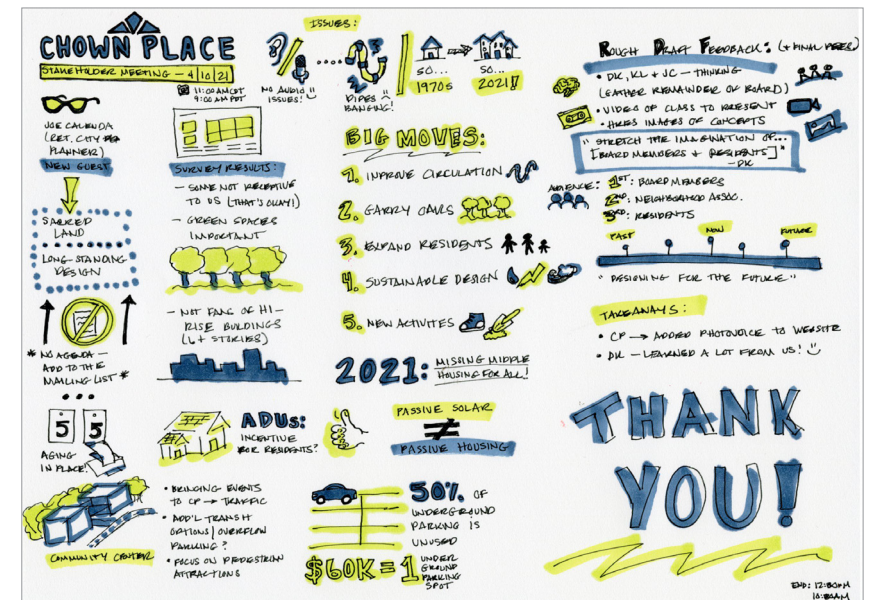 CHOWN PLACE
STAKEHOLDER MEETING - 4/10/21
11:00AM CDT
9:00AM PDT
JOE CALENDA
(RET. CITY
PLANNER)
NEW GUEST
SACRED
LAND
LONG-STANDING
DESIGN
* NO AGENDA -
ADD TO THE
MAILING LIST *
5 5
AGING
IN PLACE!
COMMUNITY CENTER
SURVEY RESULTS:
- SOME NOT RECEPTIVE
TO US (THAT'S OKAY!)
- GREEN SPACES
IMPORTANT
- NOT FANS OF HI-
RISE BUILDINGS
(6+ STORIES)
ADUs:
INCENTIVE
FOR RESIDENTS?
• BRINGING EVENTS
TO CP → TRAFFIC
• ADD'L TRANSIT
OPTIONS/OVERFLOW
PARKING?
• FOCUS ON PEDESTRIAN
ATTRACTIONS
ISSUES:
NO AUDIO
ISSUES!
PIPES
BANGING!
SO...
1970s
SO...
2021!
BIG MOVES:
1. IMPROVE CIRCULATION
2. GARRY OAKS
3. EXPAND RESIDENTS
4. SUSTAINABLE DESIGN
5. NEW ACTIVITES
2021: MISSING MIDDLE
HOUSING FOR ALL!
PASSIVE SOLAR
≠
PASSIVE HOUSING
50% OF
UNDERGROUND
PARKING IS
UNUSED
$60K = 1 UNDER
GROUND
PARKING
SPOT
ROUGH DRAFT FEEDBACK: (+ FINAL
• DK, KL + JC - THINKING
REMAINDER OF BOARD)
• VIDEO OF CLASS TO PRESENT
• HIRES IMAGES OF CONCEPTS
"STRETCH THE IMAGINATION OF...
[BOARD MEMBERS + RESIDENTS]"
- DK
AUDIENCE:
1ST: BOARD MEMBERS
2ND: NEIGHBORHOOD ASSOC.
3RD: RESIDENTS
PAST NOW FUTURE
"DESIGNING FOR THE FUTURE"
TAKEAWAYS:
• CP → ADDED PHOTOVOICE TO WEBSITE
• DK - LEARNED A LOT FROM US!
THANK
YOU!
END: 12:30PM
10:30AM